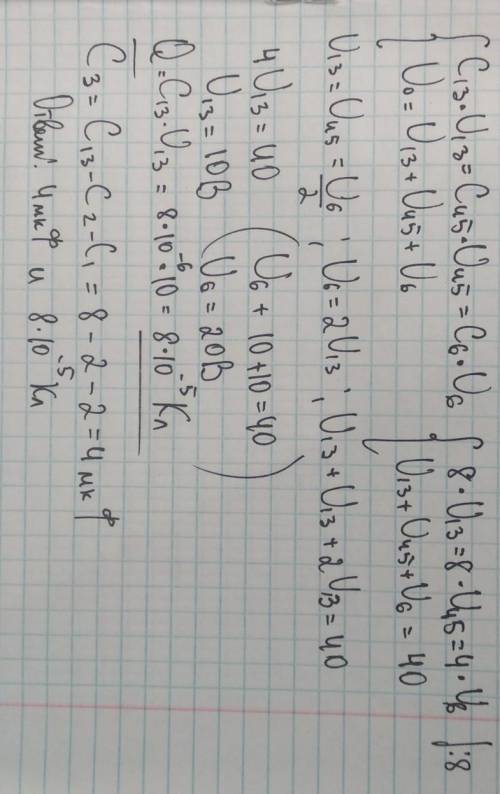 { C₁₃·U₁₃ = C₄₅·U₄₅ = C₆·U₆ { 8·U₁₃ = 8·U₄₅ = 4·U₆ |:8
{ U₀ = U₁₃ + U₄₅ + U₆ { U₁₃ + U₄₅ + U₆ = 40
U₁₃ = U₄₅ = U₆/2 ; U₆ = 2U₁₃ ; U₁₃ + U₁₃ + 2U₁₃ = 40
4U₁₃ = 40 ( U₆ + 10 + 10 = 40
U₁₃ = 10В U₆ = 20В )
Q = C₁₃·U₁₃ = 8·10⁻⁶·10 = 8·10⁻⁵ Кл
C₃ = C₁₃ - C₂ - C₁ = 8 - 2 - 2 = 4 мкф
Ответ: 4мкф и 8·10⁻⁵ Кл